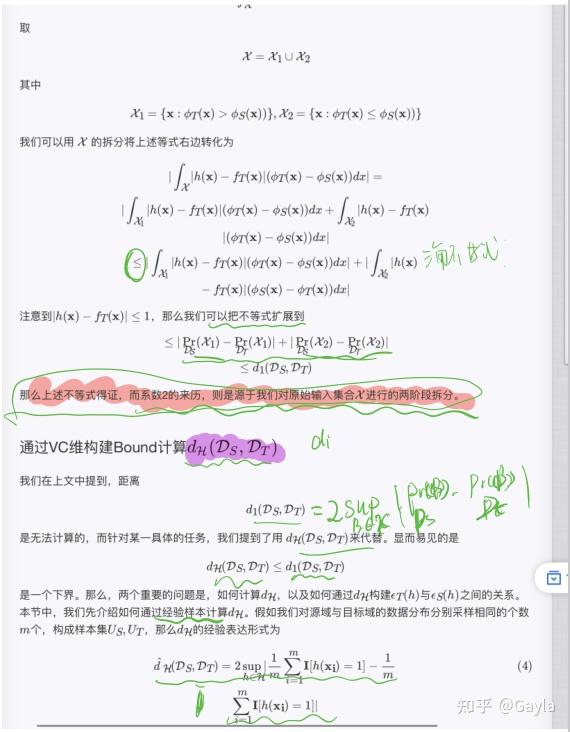 取
𝒳 = 𝒳₁ ∪ 𝒳₂
其中
𝒳₁ = {x : ϕ_T(x) > ϕ_S(x))}, 𝒳₂ = {x : ϕ_T(x) ≤ ϕ_S(x))}
我们可以用 𝒳 的拆分将上述等式右边转化为
|∫_𝒳 |h(x) − f_T(x)|(ϕ_T(x) − ϕ_S(x))dx| =
|∫_𝒳₁ |h(x) − f_T(x)|(ϕ_T(x) − ϕ_S(x))dx + ∫_𝒳₂ |h(x) − f_T(x)
|(ϕ_T(x) − ϕ_S(x))dx|
≤ |∫_𝒳₁ |h(x) − f_T(x)|(ϕ_T(x) − ϕ_S(x))dx| + |∫_𝒳₂ |h(x) 三角不等式
− f_T(x)|(ϕ_S(x) − ϕ_T(x))dx|
注意到|h(x) − f_T(x)| ≤ 1，那么我们可以把不等式扩展到
≤ |Pr_{𝒟_S}(𝒳₁) − Pr_{𝒟_T}(𝒳₁)| + |Pr_{𝒟_S}(𝒳₂) − Pr_{𝒟_T}(𝒳₂)|
≤ d₁(𝒟_S, 𝒟_T)
那么上述不等式得证，而系数2的来历，则是源于我们对原始输入集合𝒳进行的两阶段拆分。
通过VC维构建Bound计算d_ℋ(𝒟_S, 𝒟_T)
d₁
我们在上文中提到，距离
d₁(𝒟_S, 𝒟_T) = 2 sup | Pr(B) - Pr(B) |
是无法计算的，而针对某一具体的任务，我们提到了用 d_ℋ(𝒟_S, 𝒟_T)来代替。显而易见的是
d_ℋ(𝒟_S, 𝒟_T) ≤ d₁(𝒟_S, 𝒟_T)
是一个下界。那么，两个重要的问题是，如何计算d_ℋ，以及如何通过d_ℋ构建ϵ_T(h)与ϵ_S(h)之间的关系。
本节中，我们先介绍如何通过经验样本计算d_ℋ。假如我们对源域与目标域的数据分布分别采样相同的个数
m个，构成样本集U_S, U_T，那么d_ℋ的经验表达形式为
d̂_ℋ(𝒟_S, 𝒟_T) = 2 sup_{h∈ℋ} |1/m ∑_{i=1}^m I[h(x_i) = 1] − 1/m (4)
∑_{i=1}^m I[h(x_i) = 1]|
知乎 @Gayla